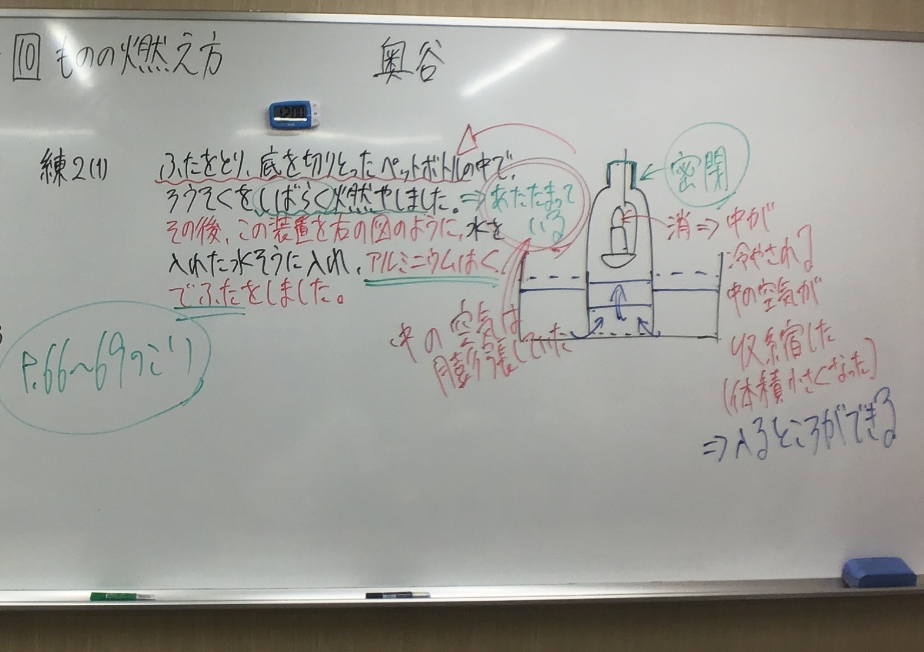 10 ものの燃え方
奥谷
練2(1)
ふたをとり、底を切りとったペットボトルの中で、
ろうそくをしばらく燃やしました。⇒あたたまって
いる
その後、この装置を右の図のように、水を
入れた水そうに入れ、アルミニウムはく
でふたをしました。
中の空気は
膨張していた
密閉
消⇒中が
冷やされる
中の空気が
収縮した
(体積小さくなった)
⇒入るところができる
P.66〜69のこり